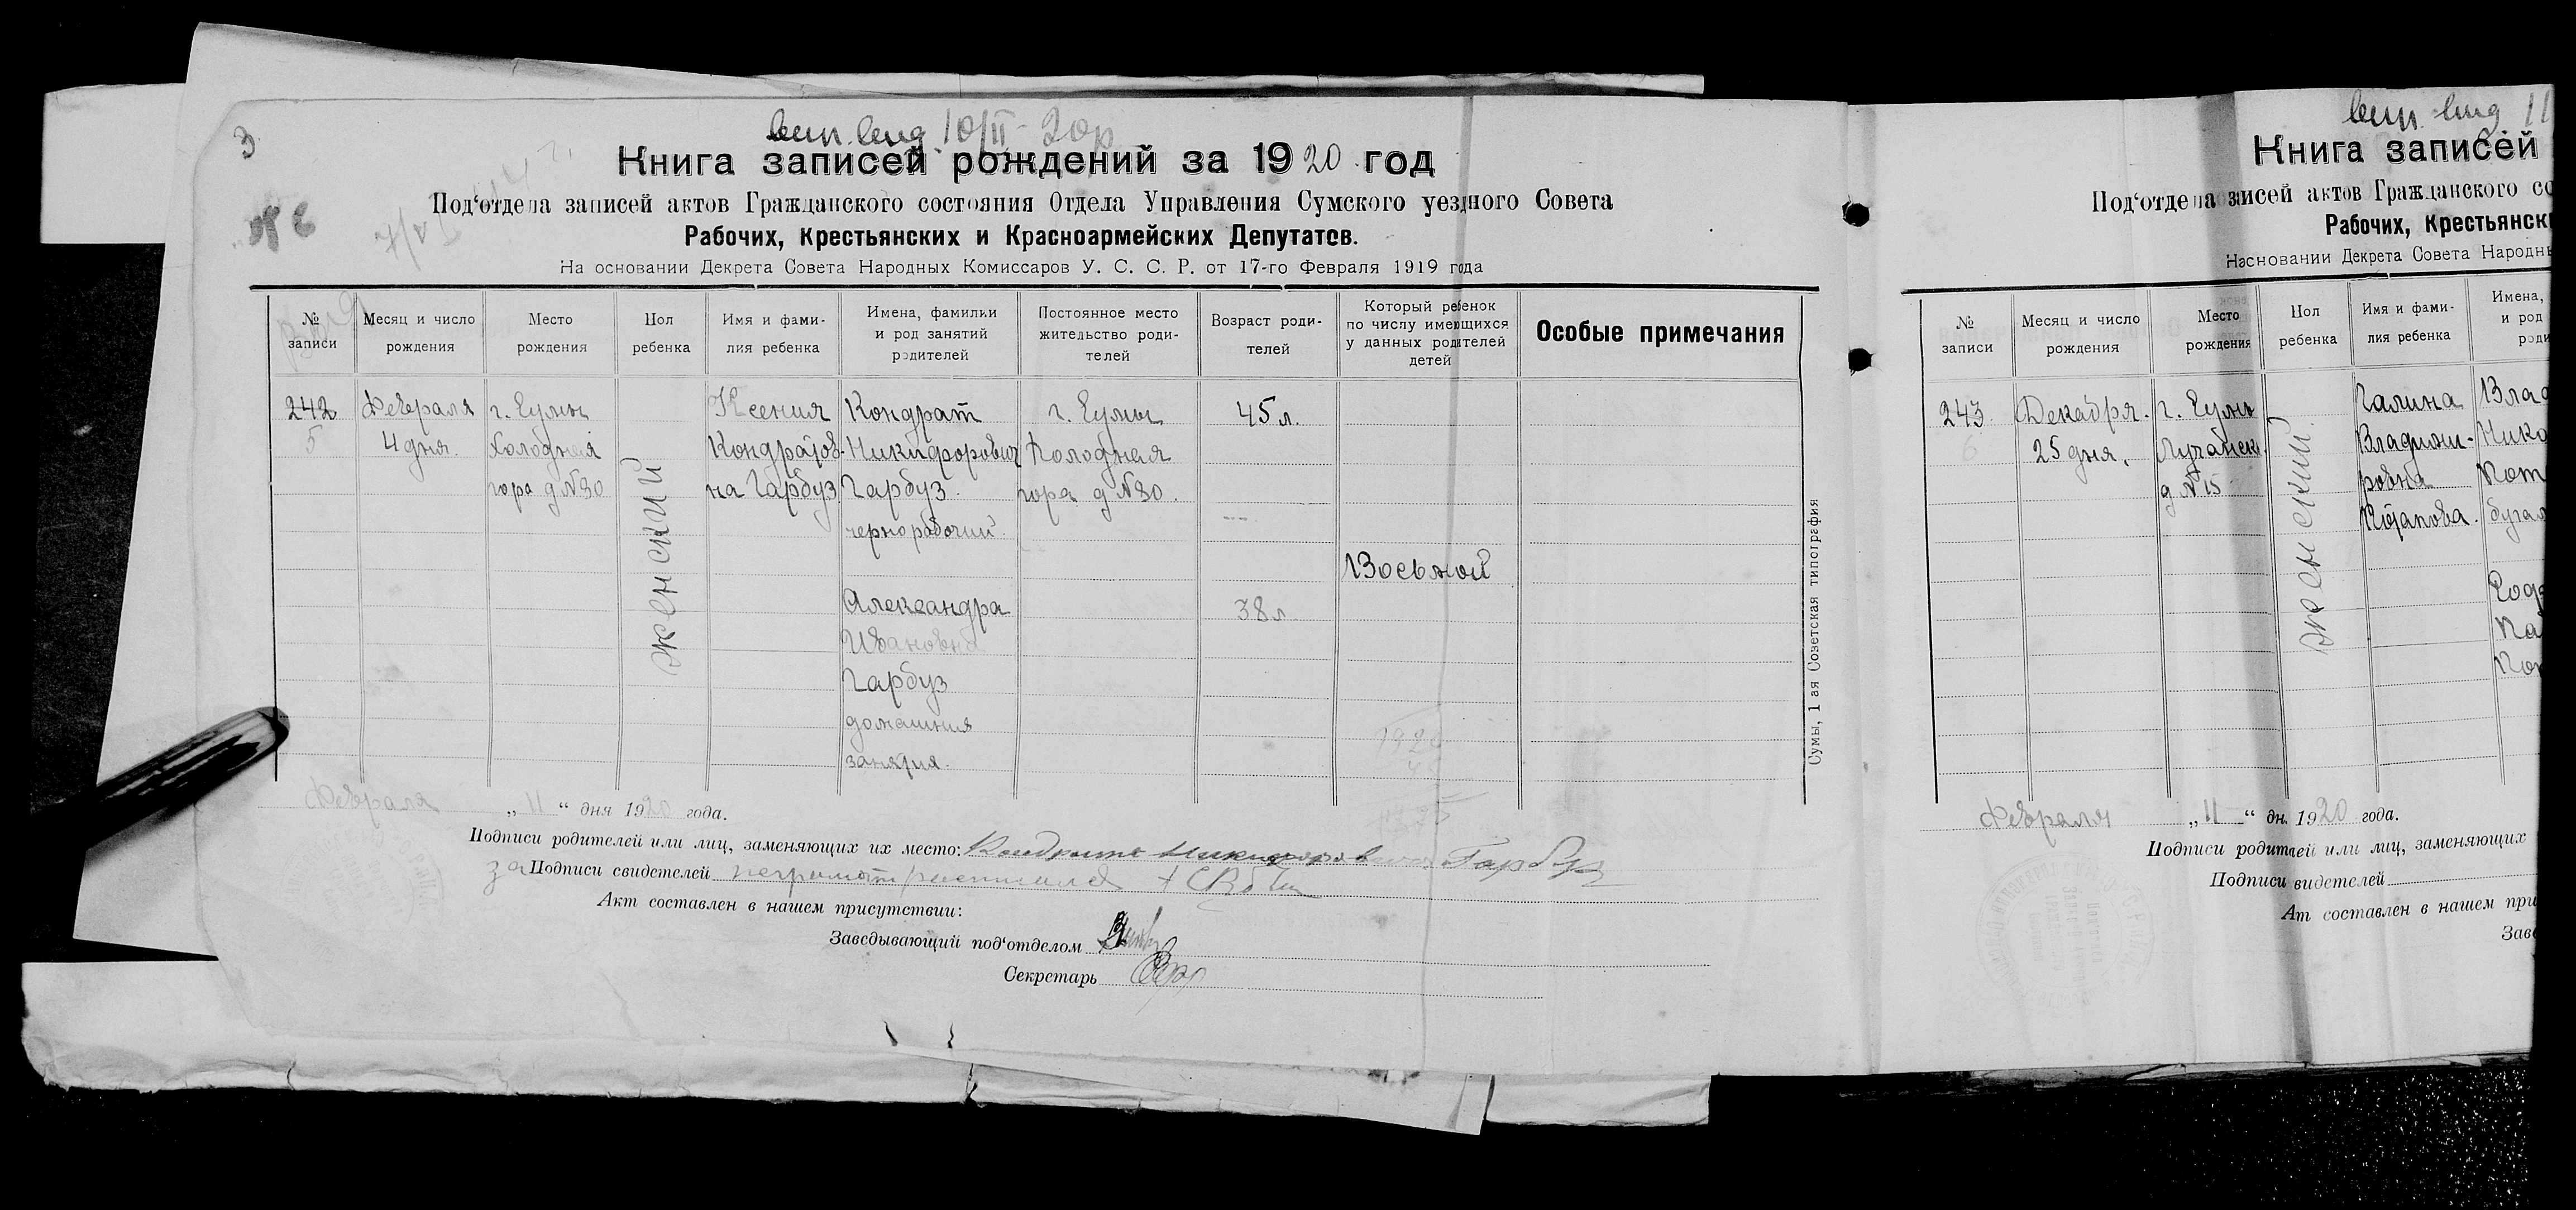 3
10/II 20р
Книга записей рождений за 1920 год
Под'отдела записей актов Гражданского состояния Отдела Управления Сумского уездного Совета
Рабочих, Крестьянских и Красноармейских Депутатов.
На основании Декрета Совета Народных Комиссаров У. С. С. Р. от 17-го Февраля 1919 года
№ записи
Месяц и число рождения
Место рождения
Пол ребенка
Имя и фамилия ребенка
Имена, фамилии и род занятий родителей
Постоянное место жительство родителей
Возраст родителей
Который ребенок по числу имеющихся у данных родителей детей
Особые примечания
242
5
Февраля
4 дня.
г. Сумы
Холодная
гора д №30
женский
Ксения
Кондратов-
на Гарбуз
Кондрат
Никифорович
Гарбуз.
чернорабочий.
Александра
Ивановна
Гарбуз
домашния
занятия.
г. Сумы
Холодная
гора д №30.
45 л.
38 л.
Восьмой
Сумы, 1 ая Советская типография
Февраля „11“ дня 1920 года.
Подписи родителей или лиц, заменяющих их место: Кондрат Никифорович Гарбуз
за Подписи свидетелей неграмотн
Акт составлен в нашем присутствии:
Заведывающий под'отделом
Секретарь
Книга записей
Под'отдела записей актов Гражданского со
Рабочих, Крестьянск
На основании Декрета Совета Народн
№ записи
Месяц и число рождения
Место рождения
Пол ребенка
Имя и фамилия ребенка
Имена,
и род
роди
243.
6
Декабря.
25 дня.
г. Сумы
д №15
женский.
Галина
Владими-
ровна
Потапова.
Влад
Нико
Пот
бухгал
Февраля „11“ дн. 1920 года.
Подписи родителей или лиц, заменяющих
Подписи видетелей
Ат составлен в нашем при
Заве